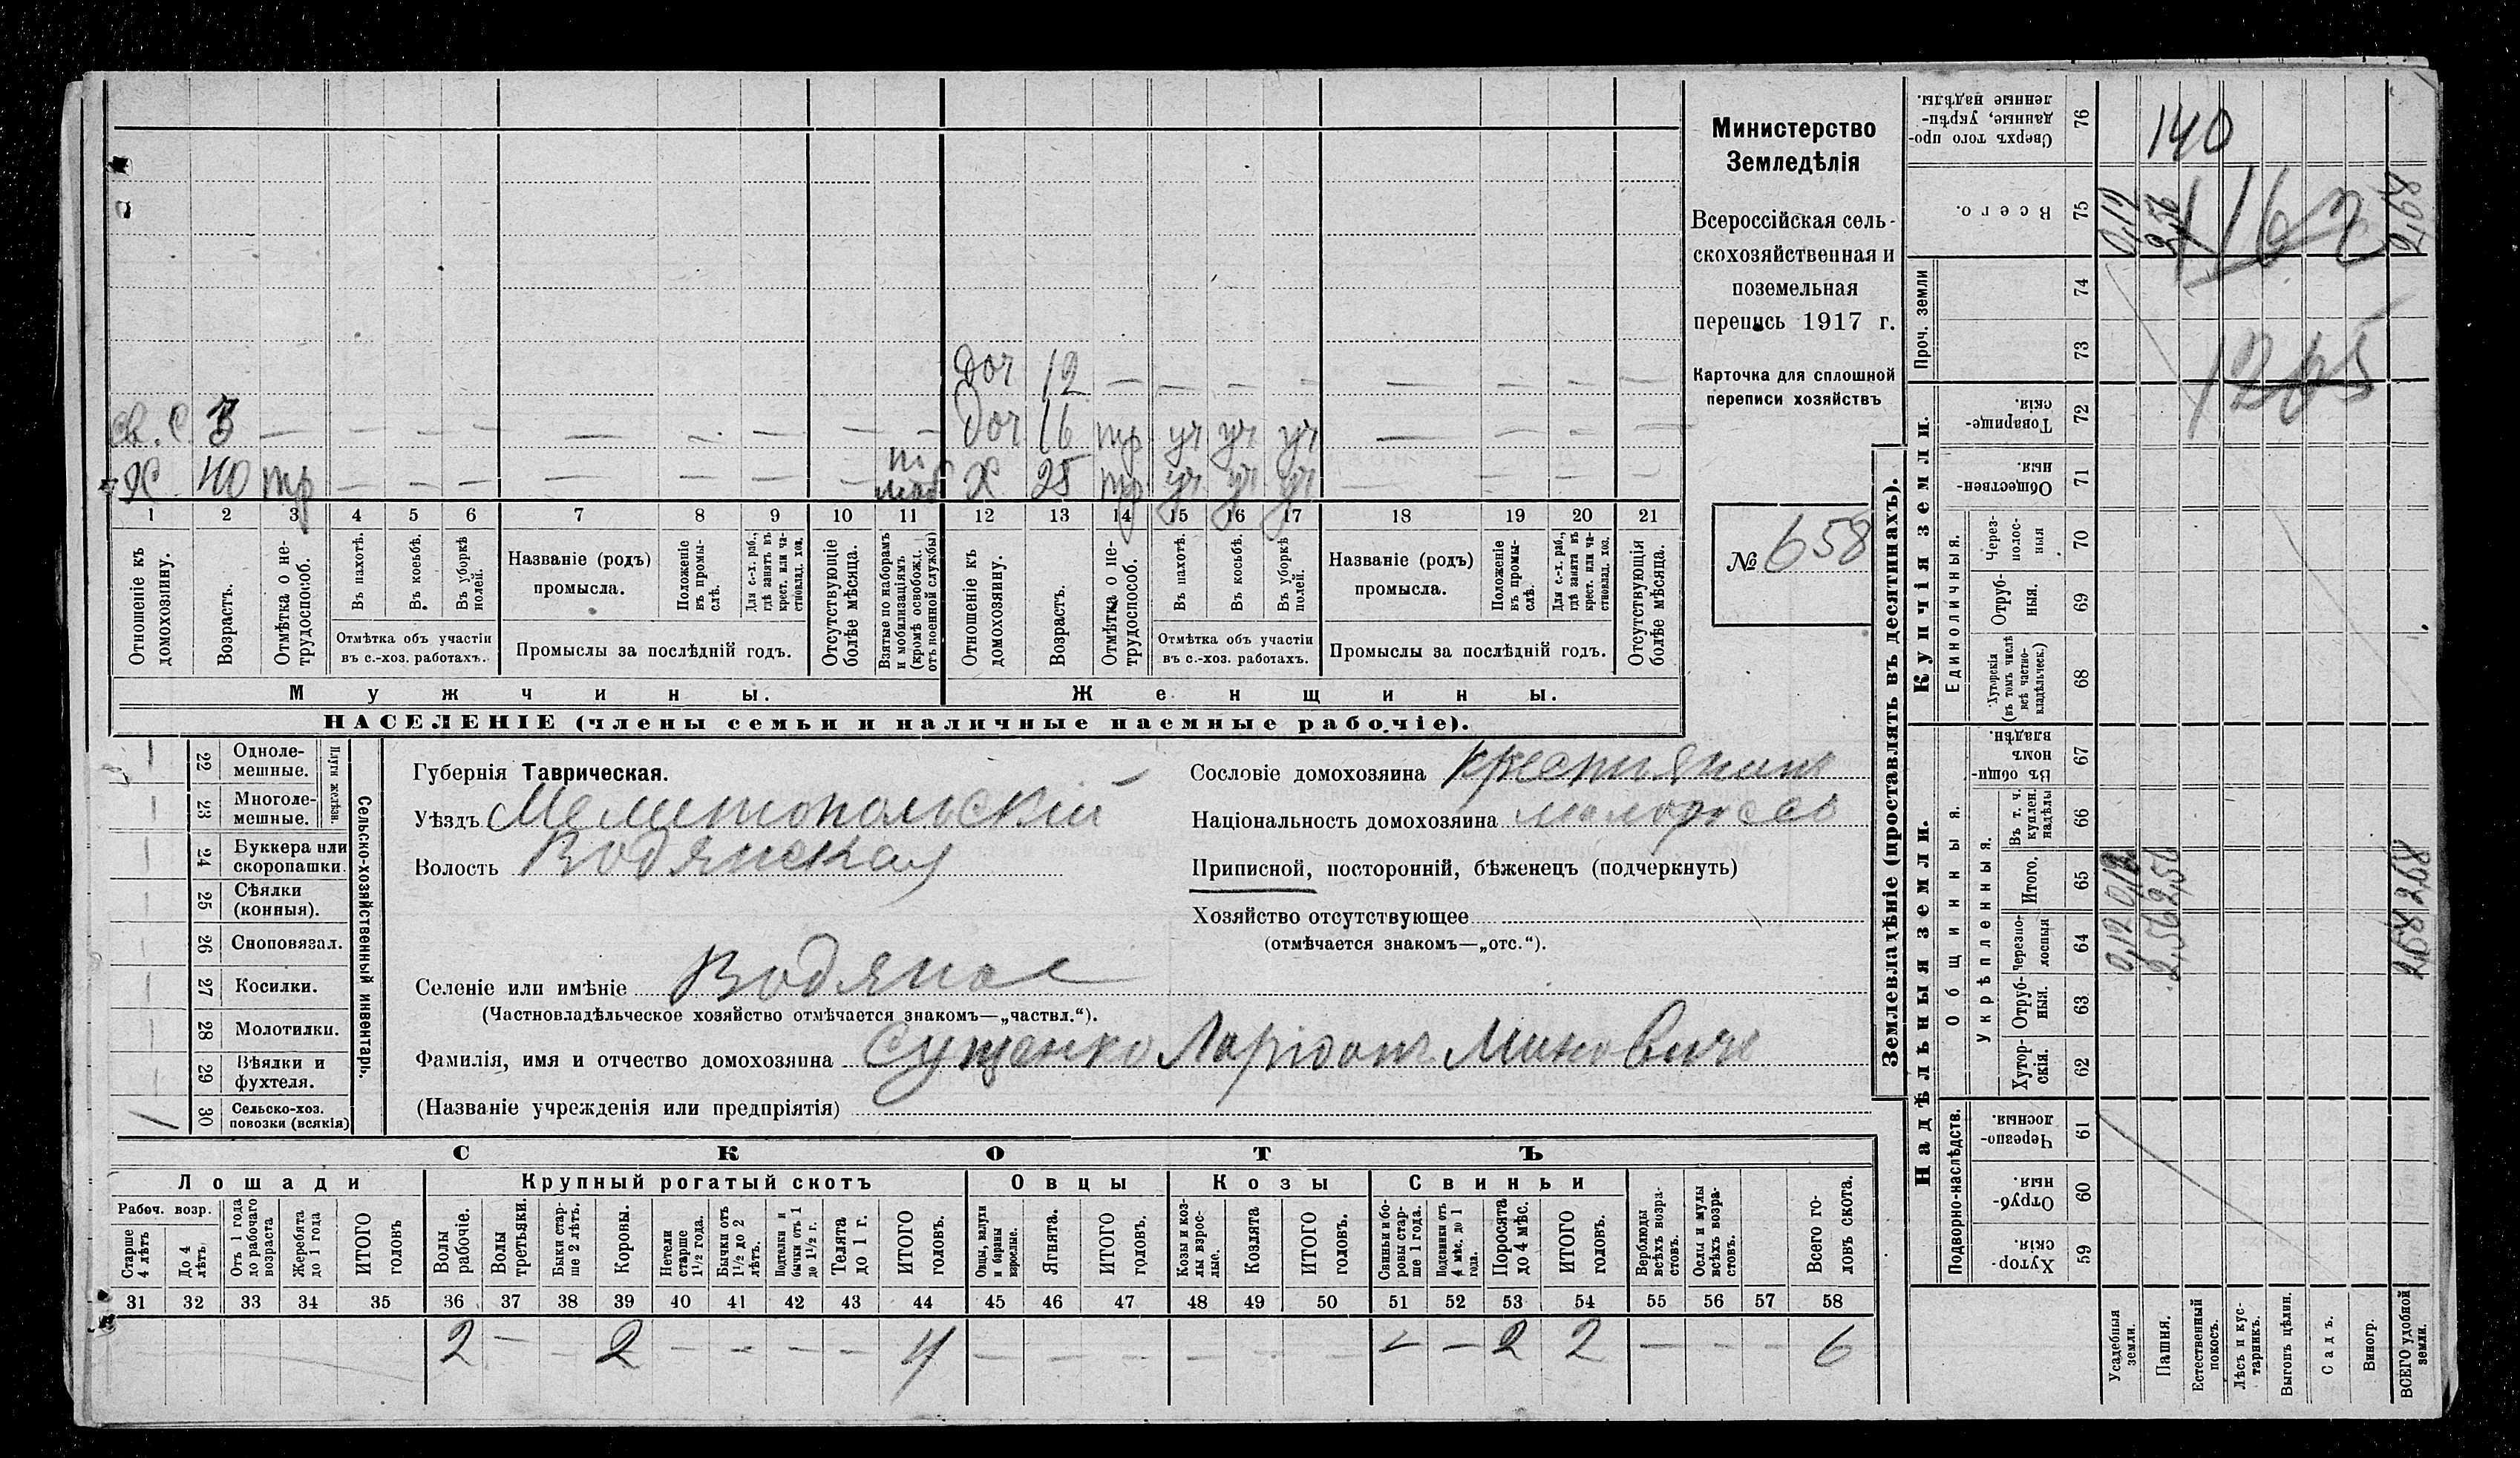 Министерство
Земледѣлія
Всероссійская сель-
скохозяйственная и
поземельная
перепись 1917 г.
Карточка для сплошной
переписи хозяйствъ
№ 658
доч 12 — — — — — — — —
св. с. 3 — — — — — — — — доч 16 тр уч уч уч — — — —
Х 40 тр — — — — — — — Х 25 тр уч уч уч — — — —
1 2 3 4 5 6 7 8 9 10 11 12 13 14 15 16 17 18 19 20 21
Отношеніе къ домохозяину.
Возрастъ.
Отмѣтка о не-трудоспособ.
Въ пахотѣ.
Въ косьбѣ.
Въ уборкѣ полей.
Отмѣтка объ участіи въ с.-хоз. работахъ.
Названіе (родъ) промысла.
Положеніе въ промы-слѣ.
Для с.-х. раб., гдѣ занятъ въ крест. или ча-стновлад. хоз.
Промыслы за послѣдній годъ.
Отсутствующіе болѣе мѣсяца.
Взятые по наборамъ и мобилизаціямъ (кромѣ освобожд. отъ военной службы)
Отношеніе къ домохозяину.
Возрастъ.
Отмѣтка о не-трудоспособ.
Въ пахотѣ.
Въ косьбѣ.
Въ уборкѣ полей.
Отмѣтка объ участіи въ с.-хоз. работахъ.
Названіе (родъ) промысла.
Положеніе въ промы-слѣ.
Для с.-х. раб., гдѣ занята въ крест. или ча-стновлад. хоз.
Промыслы за послѣдній годъ.
Отсутствующія болѣе мѣсяца.
Мужчины. Женщины.
НАСЕЛЕНІЕ (члены семьи и наличные наемные рабочіе).
Сельско-хозяйственный инвентарь.
Плуги желѣзн.
22 Одноле-мешные.
23 Многоле-мешные.
24 Буккера или скоропашки.
25 Сѣялки (конныя).
26 Сноповязал.
27 Косилки.
28 Молотилки.
29 Вѣялки и фухтеля.
30 Сельско-хоз. повозки (всякія)
Губернія Таврическая.
Уѣздъ Мелитопольскій
Волость Водянская
Селеніе или имѣніе Водяное
(Частновладѣльческое хозяйство отмѣчается знакомъ—„частвл.“).
Фамилія, имя и отчество домохозяина Сущенко Ларіонъ Миновичъ
(Названіе учрежденія или предпріятія)
Сословіе домохозяина крестьянинъ
Національность домохозяина малороссъ
Приписной, посторонній, бѣженецъ (подчеркнуть)
Хозяйство отсутствующее
(отмѣчается знакомъ—„отс.“).
СКОТЪ
Лошади Крупный рогатый скотъ Овцы Козы Свиньи
Рабоч. возр.
Старше 4 лѣтъ
До 4 лѣтъ
Отъ 1 года до рабочаго возраста
Жеребята до 1 года
ИТОГО головъ
Волы рабочіе.
Волы третьяки.
Быки стар-ше 2 лѣтъ.
Коровы.
Нетели старше 1½ года.
Бычки отъ 1½ до 2 лѣтъ.
Подтелки и бычки отъ 1 до 1½ г.
Телята до 1 г.
ИТОГО головъ.
Овцы, валухи и бараны взрослые.
Ягнята.
ИТОГО головъ.
Козы и коз-лы взрос-лые.
Козлята
ИТОГО головъ.
Свиньи и бо-ровы стар-ше 1 года.
Подсвинки отъ 4 мѣс. до 1 года.
Поросята до 4 мѣс.
ИТОГО головъ.
Верблюды всѣхъ возра-стовъ.
Ослы и мулы всѣхъ возра-стовъ.
Всего го-ловъ скота.
31 32 33 34 35 36 37 38 39 40 41 42 43 44 45 46 47 48 49 50 51 52 53 54 55 56 57 58
2 — 2 — — — — 4 — — — — — — — — 2 2 — — — 6
Землевладѣніе (проставлять въ десятинахъ).
Надѣльныя земли. Купчія земли. Проч. земли
Подворно-наслѣдств.
Общинныя.
Укрѣпленныя.
Единоличныя.
59 Хутор-скія
60 Отруб-ныя.
61 Черезпо-лосныя.
62 Хутор-скія.
63 Отруб-ныя.
64 Черезпо-лосныя
65 Итого.
66 Въ т. ч. куплен. надѣлы
67 Въ общин-номъ владѣн.
68 Хуторскія (въ томъ числѣ всѣ частно-владѣльческ.)
69 Отруб-ныя.
70 Через-полос-ныя
71 Обществен-ныя.
72 Товарище-скія.
73
74
75 Всего.
76 Сверхъ того про-данные, укрѣп-ленные надѣлы.
Усадебныя земли. 0,12 0,12 0,12
Пашня. 2,56 2,56 2,56
Естественный покосъ.
Лѣсъ и кус-тарникъ.
Выгонъ цѣлин.
Садъ.
Виногр.
ВСЕГО удобной земли. 2,68 2,68 2,68
140
1162
1265